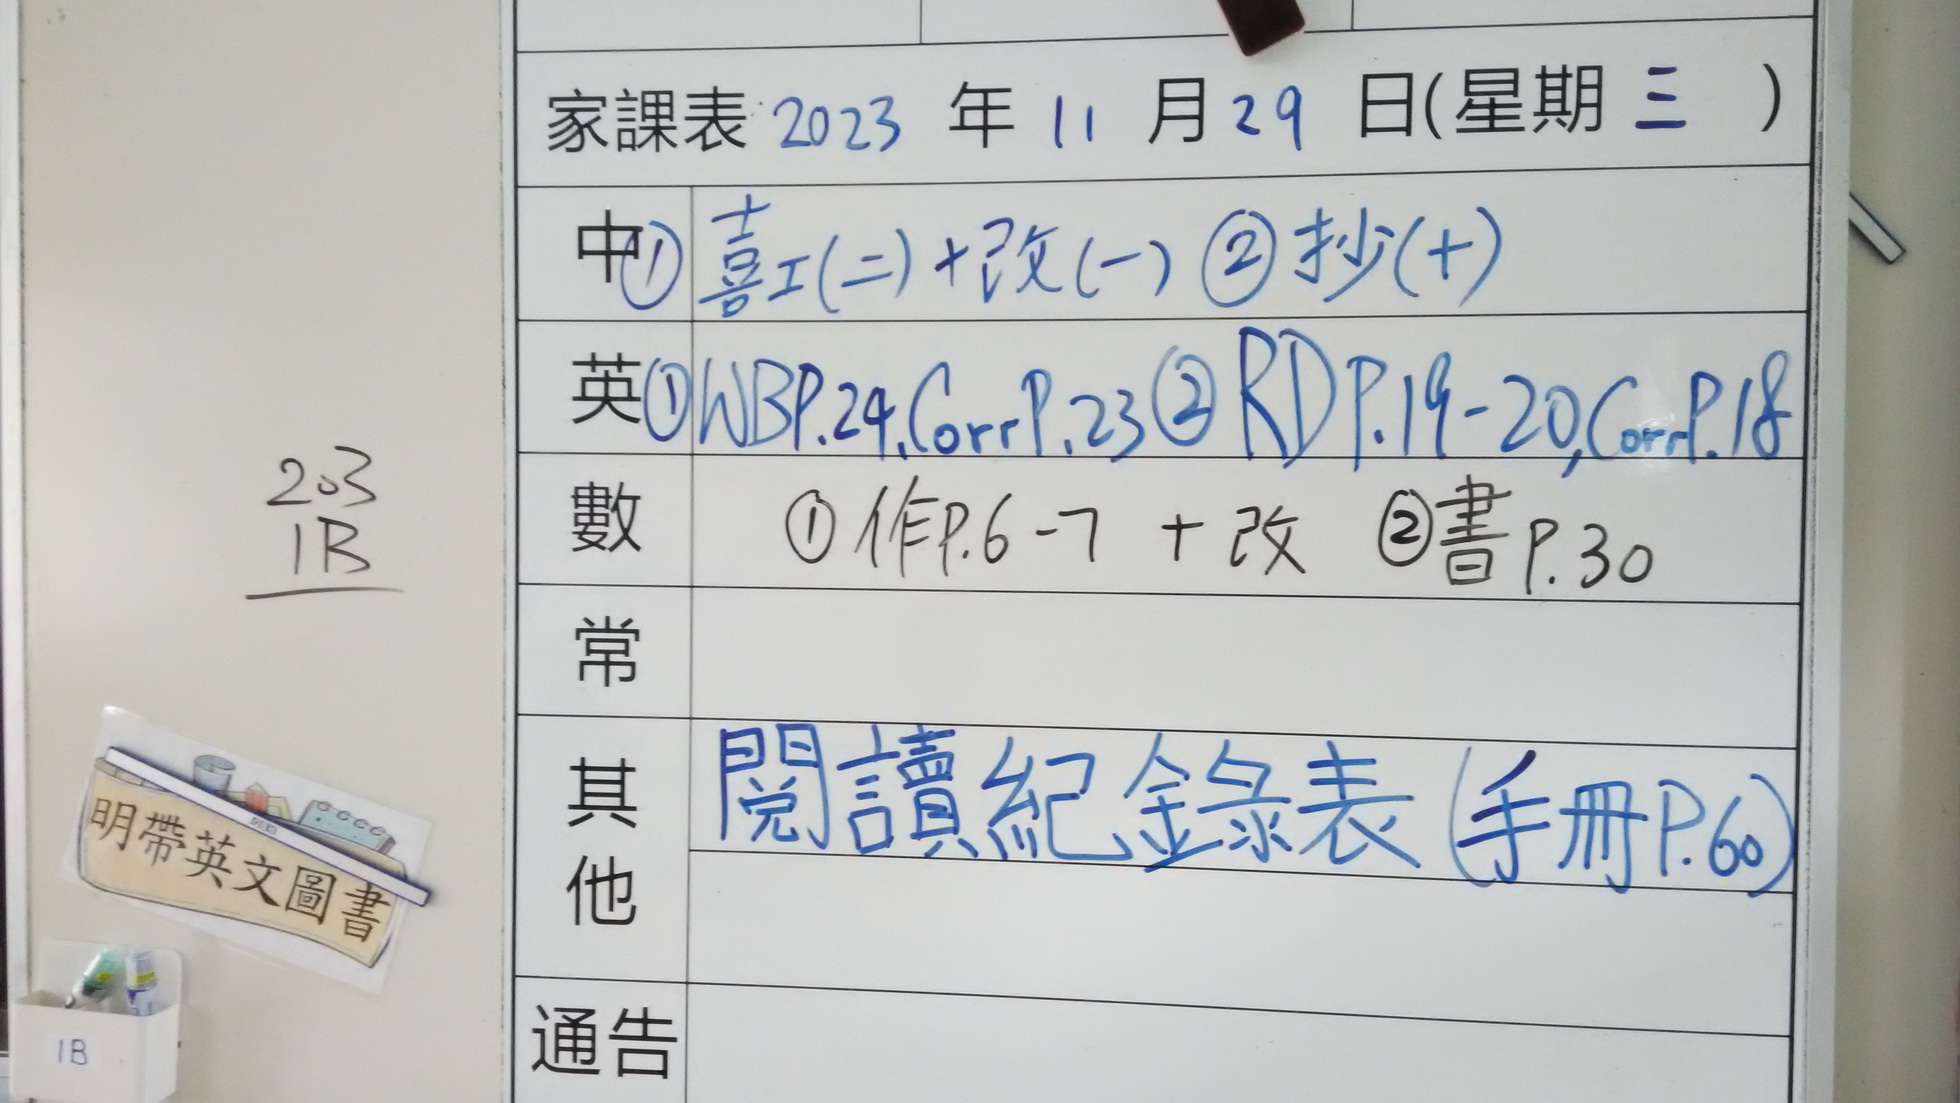 家課表 2023 年 11 月 29 日(星期 三 )
中 ① 喜工(二)+改(一) ② 抄(十)
英 ① WB P.24, Corr P.23 ② RD P.19-20, Corr P.18
數 ① 作P.6-7 + 改 ② 書 P.30
常
其他 閱讀紀錄表 (手冊 P.60)
通告
203
1B
明帶英文圖書
1B